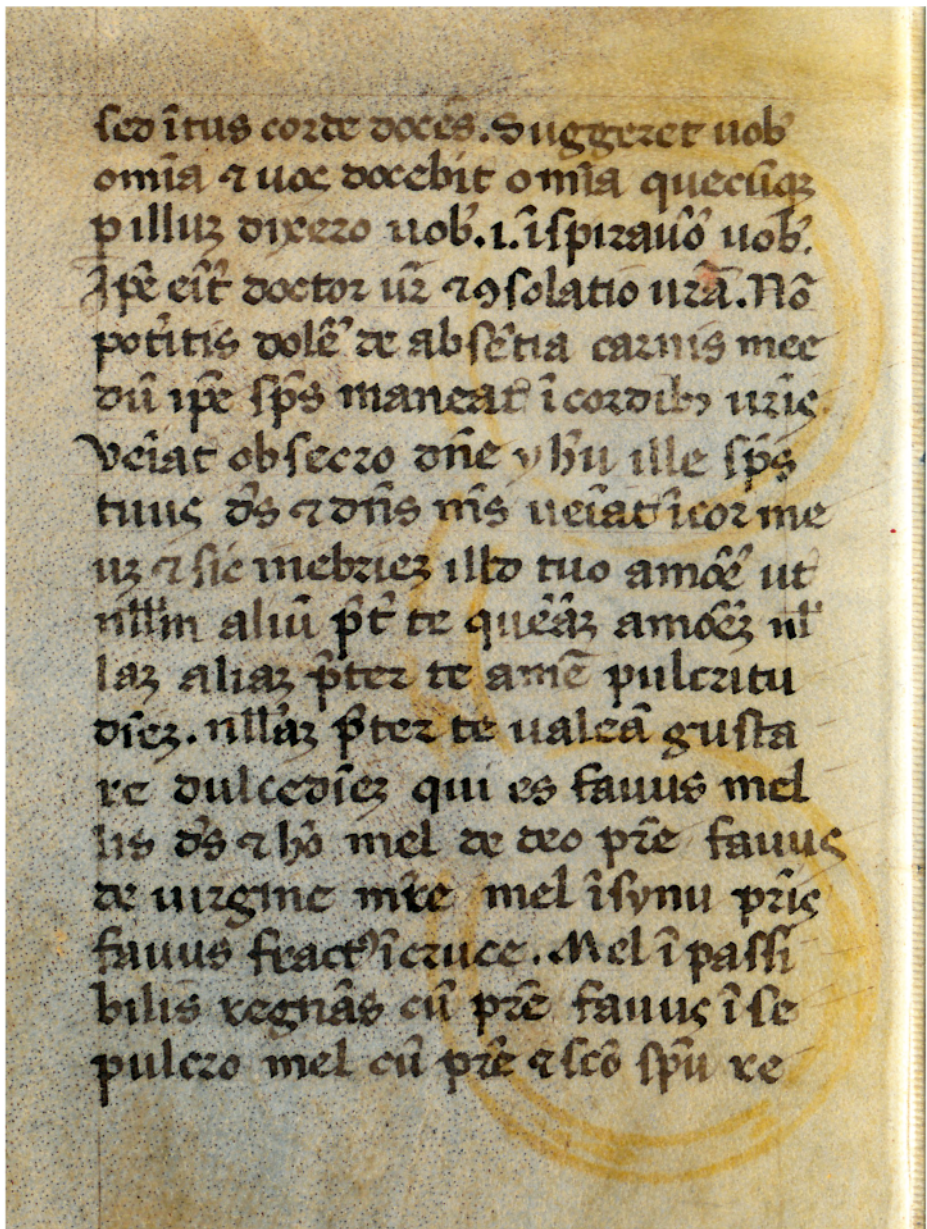 sed ĩtus corde docẽs. Suggeret uob᷒
omĩa ⁊ uoc docebit omĩa quecũqꝫ
p illuꝫ dixero uob᷒. ı. ĩspirauõ᷒ uob᷒.
Ip̃e eĩt doctor ur̃ ⁊ ꝯsolatio ur̃a. Nõ
pot̃itis dolẽ᷒ de absẽtia carnis mee
dũ ip̃e sp̃s maneat ĩ cordibꝫ ur̃is
Veĩat obsecro dñe yhu̅ ille sp̃s
tuus d̃s ⁊ dñs nr̃s ueĩat ĩ cor me
uꝫ ⁊ sic inebrieꝫ illd tuo amõẽ ut
nll̃m aliũ p̃t te quẽãꝫ amõẽꝫ nl
laꝫ aliaꝫ p̃ter te amẽ pulcritu
dĩeꝫ. nll̃aꝫ p̃ter te ualeã gusta
re dulcedĩeꝫ qui es fauus mel
lis d̃s ⁊ hõ mel de deo pr̃e fauus
de uirgine mr̃e mel ĩ synu pr̃is
fauus fract᷒ ĩ cruce. Mel ĩpassi
bilis regnãs cũ pr̃e fauus ĩ se
pulcro mel cũ pr̃e ⁊ scõ sp̃u re